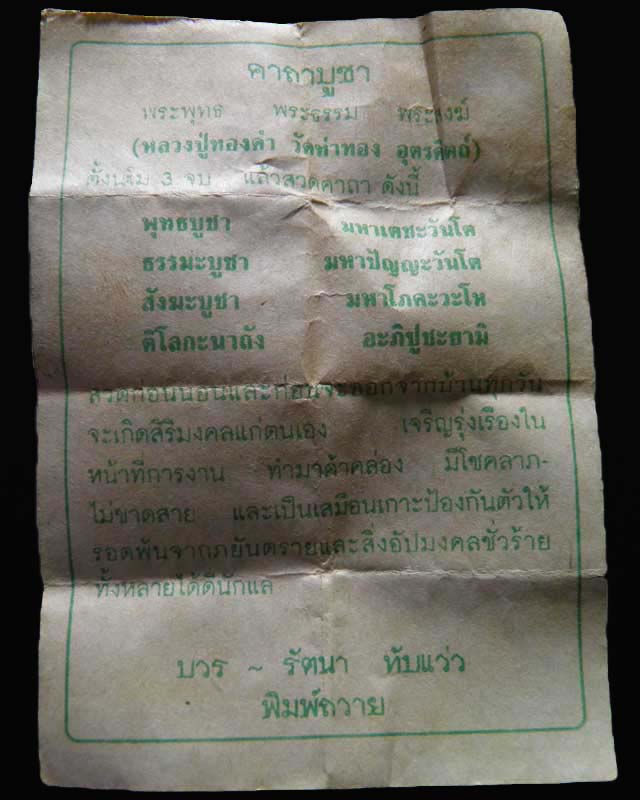 คาถาบูชา
พระพุทธ พระธรรม พระสงฆ์
(หลวงปู่ทองดำ วัดท่าทอง อุตรดิตถ์)
ตั้งนะโม 3 จบ แล้วสวดคาถา ดังนี้
พุทธบูชา มหาเตชะวันโต
ธรรมะบูชา มหาปัญญะวันโต
สังฆะบูชา มหาโภคะวะโห
ติโลกะนาถัง อะภิปูชะยามิ
สวดก่อนนอนและก่อนจะออกจากบ้านทุกวัน
จะเกิดสิริมงคลแก่ตนเอง เจริญรุ่งเรืองใน
หน้าที่การงาน ทำมาค้าคล่อง มีโชคลาภ-
ไม่ขาดสาย และเป็นเสมือนเกาะป้องกันตัวให้
รอดพ้นจากภยันตรายและสิ่งอัปมงคลชั่วร้าย
ทั้งหลายได้ดีนักแล
บวร ~ รัตนา ทับแว่ว
พิมพ์ถวาย